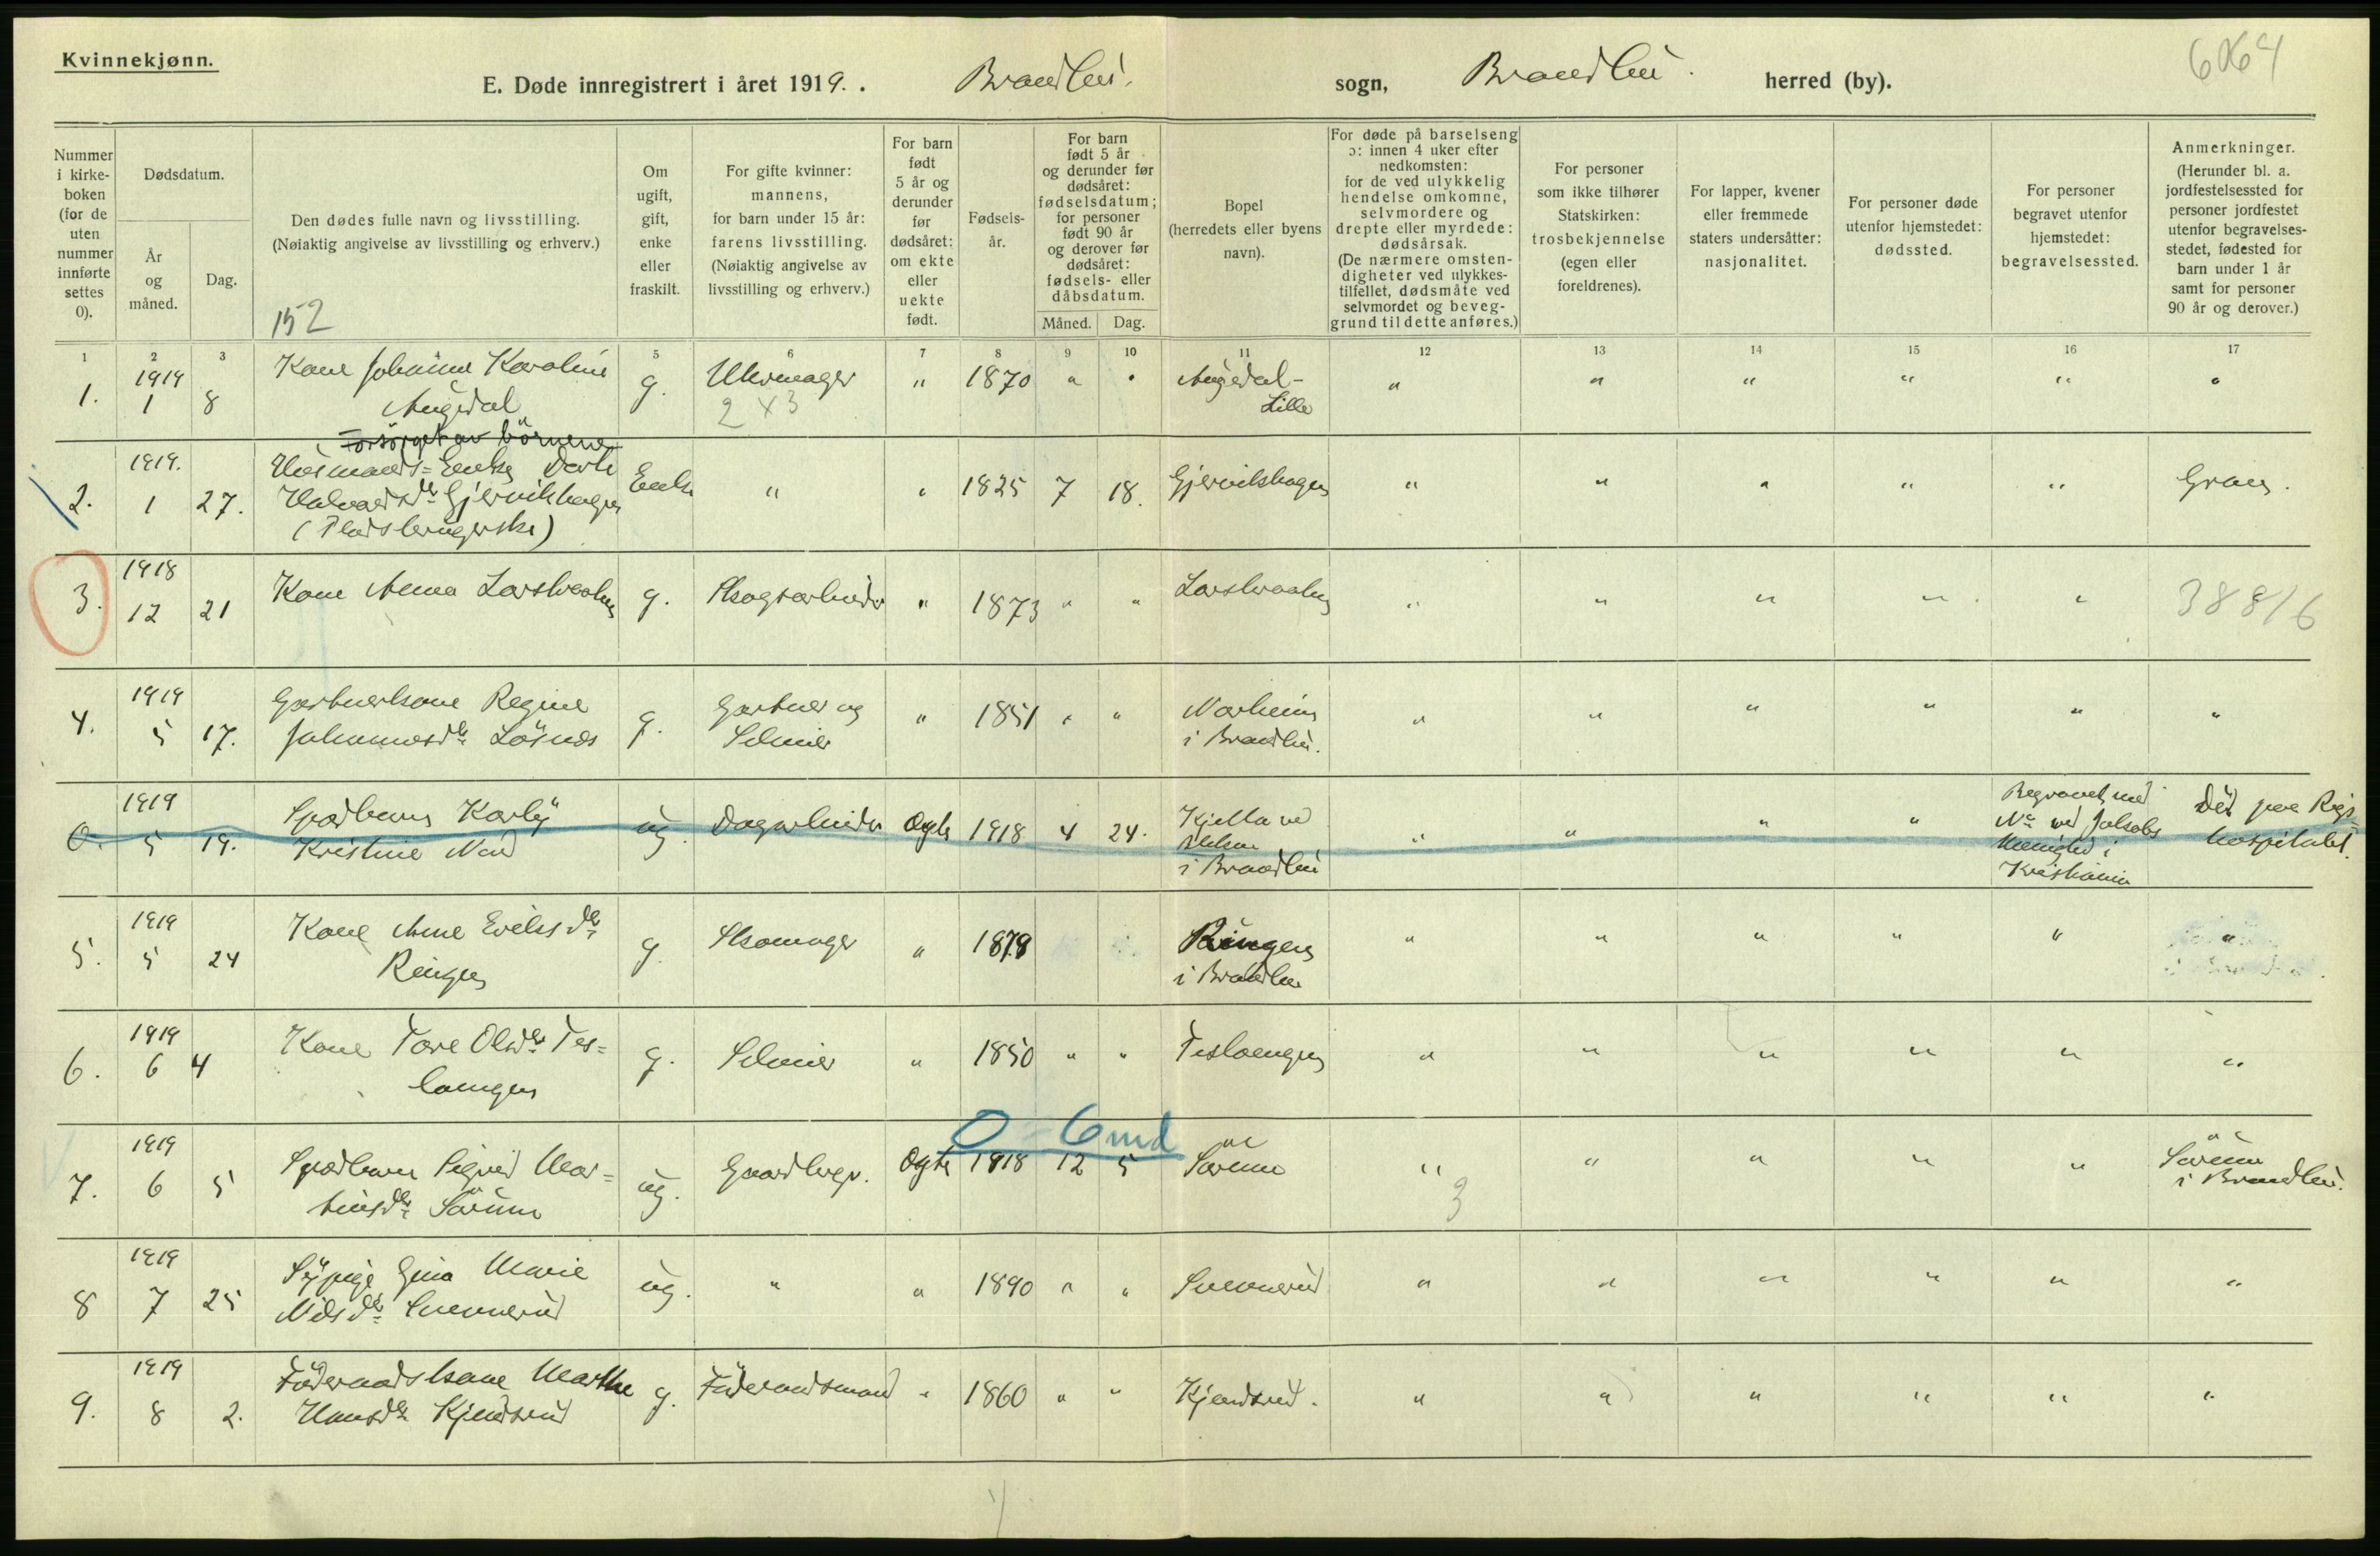 Kvinnekjønn.
E. Døde innregistrert i året 1919. . Brandbu. sogn, Brandbu. herred (by).
6064
Nummer i kirke-boken (for de uten nummer innførte settes 0).
Dødsdatum.
År og måned.
Dag.
Den dødes fulle navn og livsstilling.
(Nøiaktig angivelse av livsstilling og erhverv.)
152
Om ugift, gift, enke eller fraskilt.
For gifte kvinner: mannens, for barn under 15 år: farens livsstilling. (Nøiaktig angivelse av livsstilling og erhverv.)
For barn født 5 år og derunder før dødsåret: om ekte eller uekte født.
Fødsels-år.
For barn født 5 år og derunder før dødsåret: fødselsdatum; for personer født 90 år og derover før dødsåret: fødsels- eller dåbsdatum.
Måned. Dag.
Bopel (herredets eller byens navn).
For døde på barselseng ɔ: innen 4 uker efter nedkomsten: for de ved ulykkelig hendelse omkomne, selvmordere og drepte eller myrdede: dødsårsak. (De nærmere omsten-digheter ved ulykkes-tilfellet, dødsmåte ved selvmordet og beveg-grund til dette anføres.)
For personer som ikke tilhører Statskirken: trosbekjennelse (egen eller foreldrenes).
For lapper, kvener eller fremmede staters undersåtter: nasjonalitet.
For personer døde utenfor hjemstedet: dødssted.
For personer begravet utenfor hjemstedet: begravelsessted.
Anmerkninger. (Herunder bl. a. jordfestelsessted for personer jordfestet utenfor begravelses-stedet, fødested for barn under 1 år samt for personer 90 år og derover.)
1 2 3 5 6 7 8 9 10 11 12 13 14 15 16 17
1. 1919 1 8 Kone Johanne Karoline Augedal g. Uhrmager " 1870 " " Augedal-Lille " " " " " "
2 x 3
Forsörget av börnene
2. 1919. 1 27. Husmands=Enke Halvordsdr Gjerviksbagen (Pladsbrugerske) Enke " " 1825 7 18. Gjerviksbagen " " " " " Gran.
3. 1918 12 21 Kone Anna Larsbraaten g. Skogsarbeider " 1873 " " Larsbraaten " " " " " 38816
4. 1919 5 17. Gartnerkone Regine Johannesdr Lösnes g. Gartner og Selveier " 1851 " " Norheim i Brandbu. " " " " " "
0. 1919 5 19. Spædbarn Karly Kristine ug. Dagarbeider Ægte 1918 4 24. i Brandbu " " " " Begravet ved Jakobs Menighed i Kristiania Död paa Rigs=hospitalet.
5. 1919 5 24 Kone Anne Ringen g. Skomager " 1879 Ringen i Brandbu " " " " " "
6. 1919 6 4 Kone Tore Olsdr Tes=laengen g. Selveier " 1850 " " Teslaengen " " " " " "
0 6 md
7. 1919 6 5 Spædbarn Sigrid Mar=tinsdr Sörum ug. Gaardbrgr. Ægte 1918 12 5 Sörum " " " " " Sörum i Brandbu.
3
8 1919 7 25 Sypige Gina Marie Nilsdr Svennerud ug. " " 1890 " " Svennerud " " " " " "
9. 1919 8 2. Föderaadskone Marthe Hansdr Kjendsrud g. Föderaadsmand " 1860 " " Kjendsrud. " " " " " "